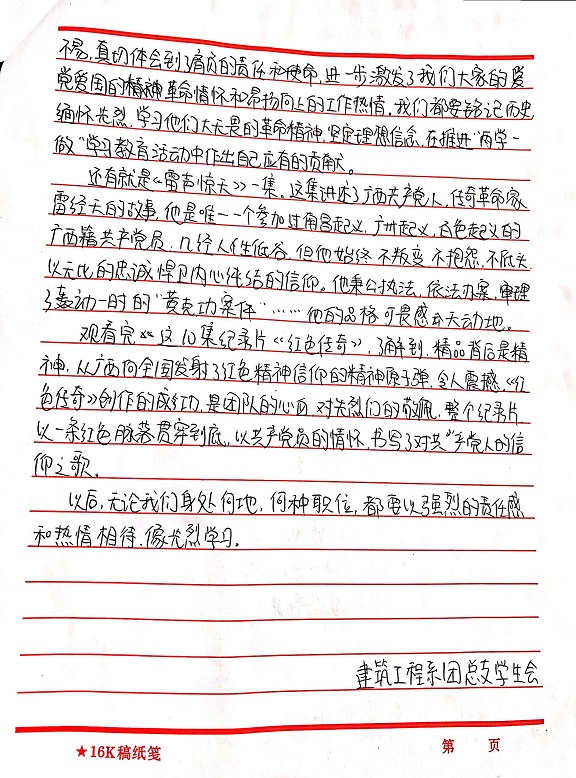 不易，真切体会到了肩负的责任和使命，进一步激发了我们大家的爱
党爱国的精神革命情怀和昂扬向上的工作热情。我们都要铭记历史
缅怀先烈，学习他们大无畏的革命精神，坚定理想信念，在推进“两学一
做”学习教育活动中作出自己应有的贡献。
还有就是《雷声惊天》一集，这集讲述了广西共产党人，传奇革命家
雷经天的故事，他是唯一一个参加过南昌起义，广州起义，百色起义的
广西籍共产党员，几经人生低谷，但他始终不叛变，不抱怨，不低头，
以无比的忠诚悍卫内心纯结的信仰。他秉公执法，依法办案，审理
了轰动一时的“黄克功案件”……他的品格可畏感天动地。
观看完《这10集纪录片《红色传奇》，了解到，精品背后是精
神，从广西向全国发射了红色精神信仰的精神原子弹，令人震撼，《红
色传奇》创作的成功，是团队的心血，对先烈们的敬佩，整个纪录片
以一条红色脉落贯穿到底，以共产党员的情怀，书写了对共产党人的信
仰之歌。
以后，无论我们身处何地，何种职位，都要以强烈的责任感
和热情相待，像先烈学习。
建筑工程系团总支学生会
★16K稿纸笺 第 页